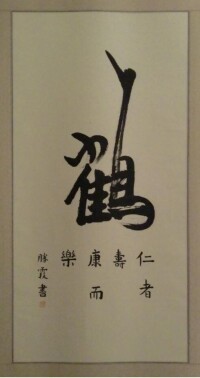 鶴
仁者
壽
康而
樂
霞書